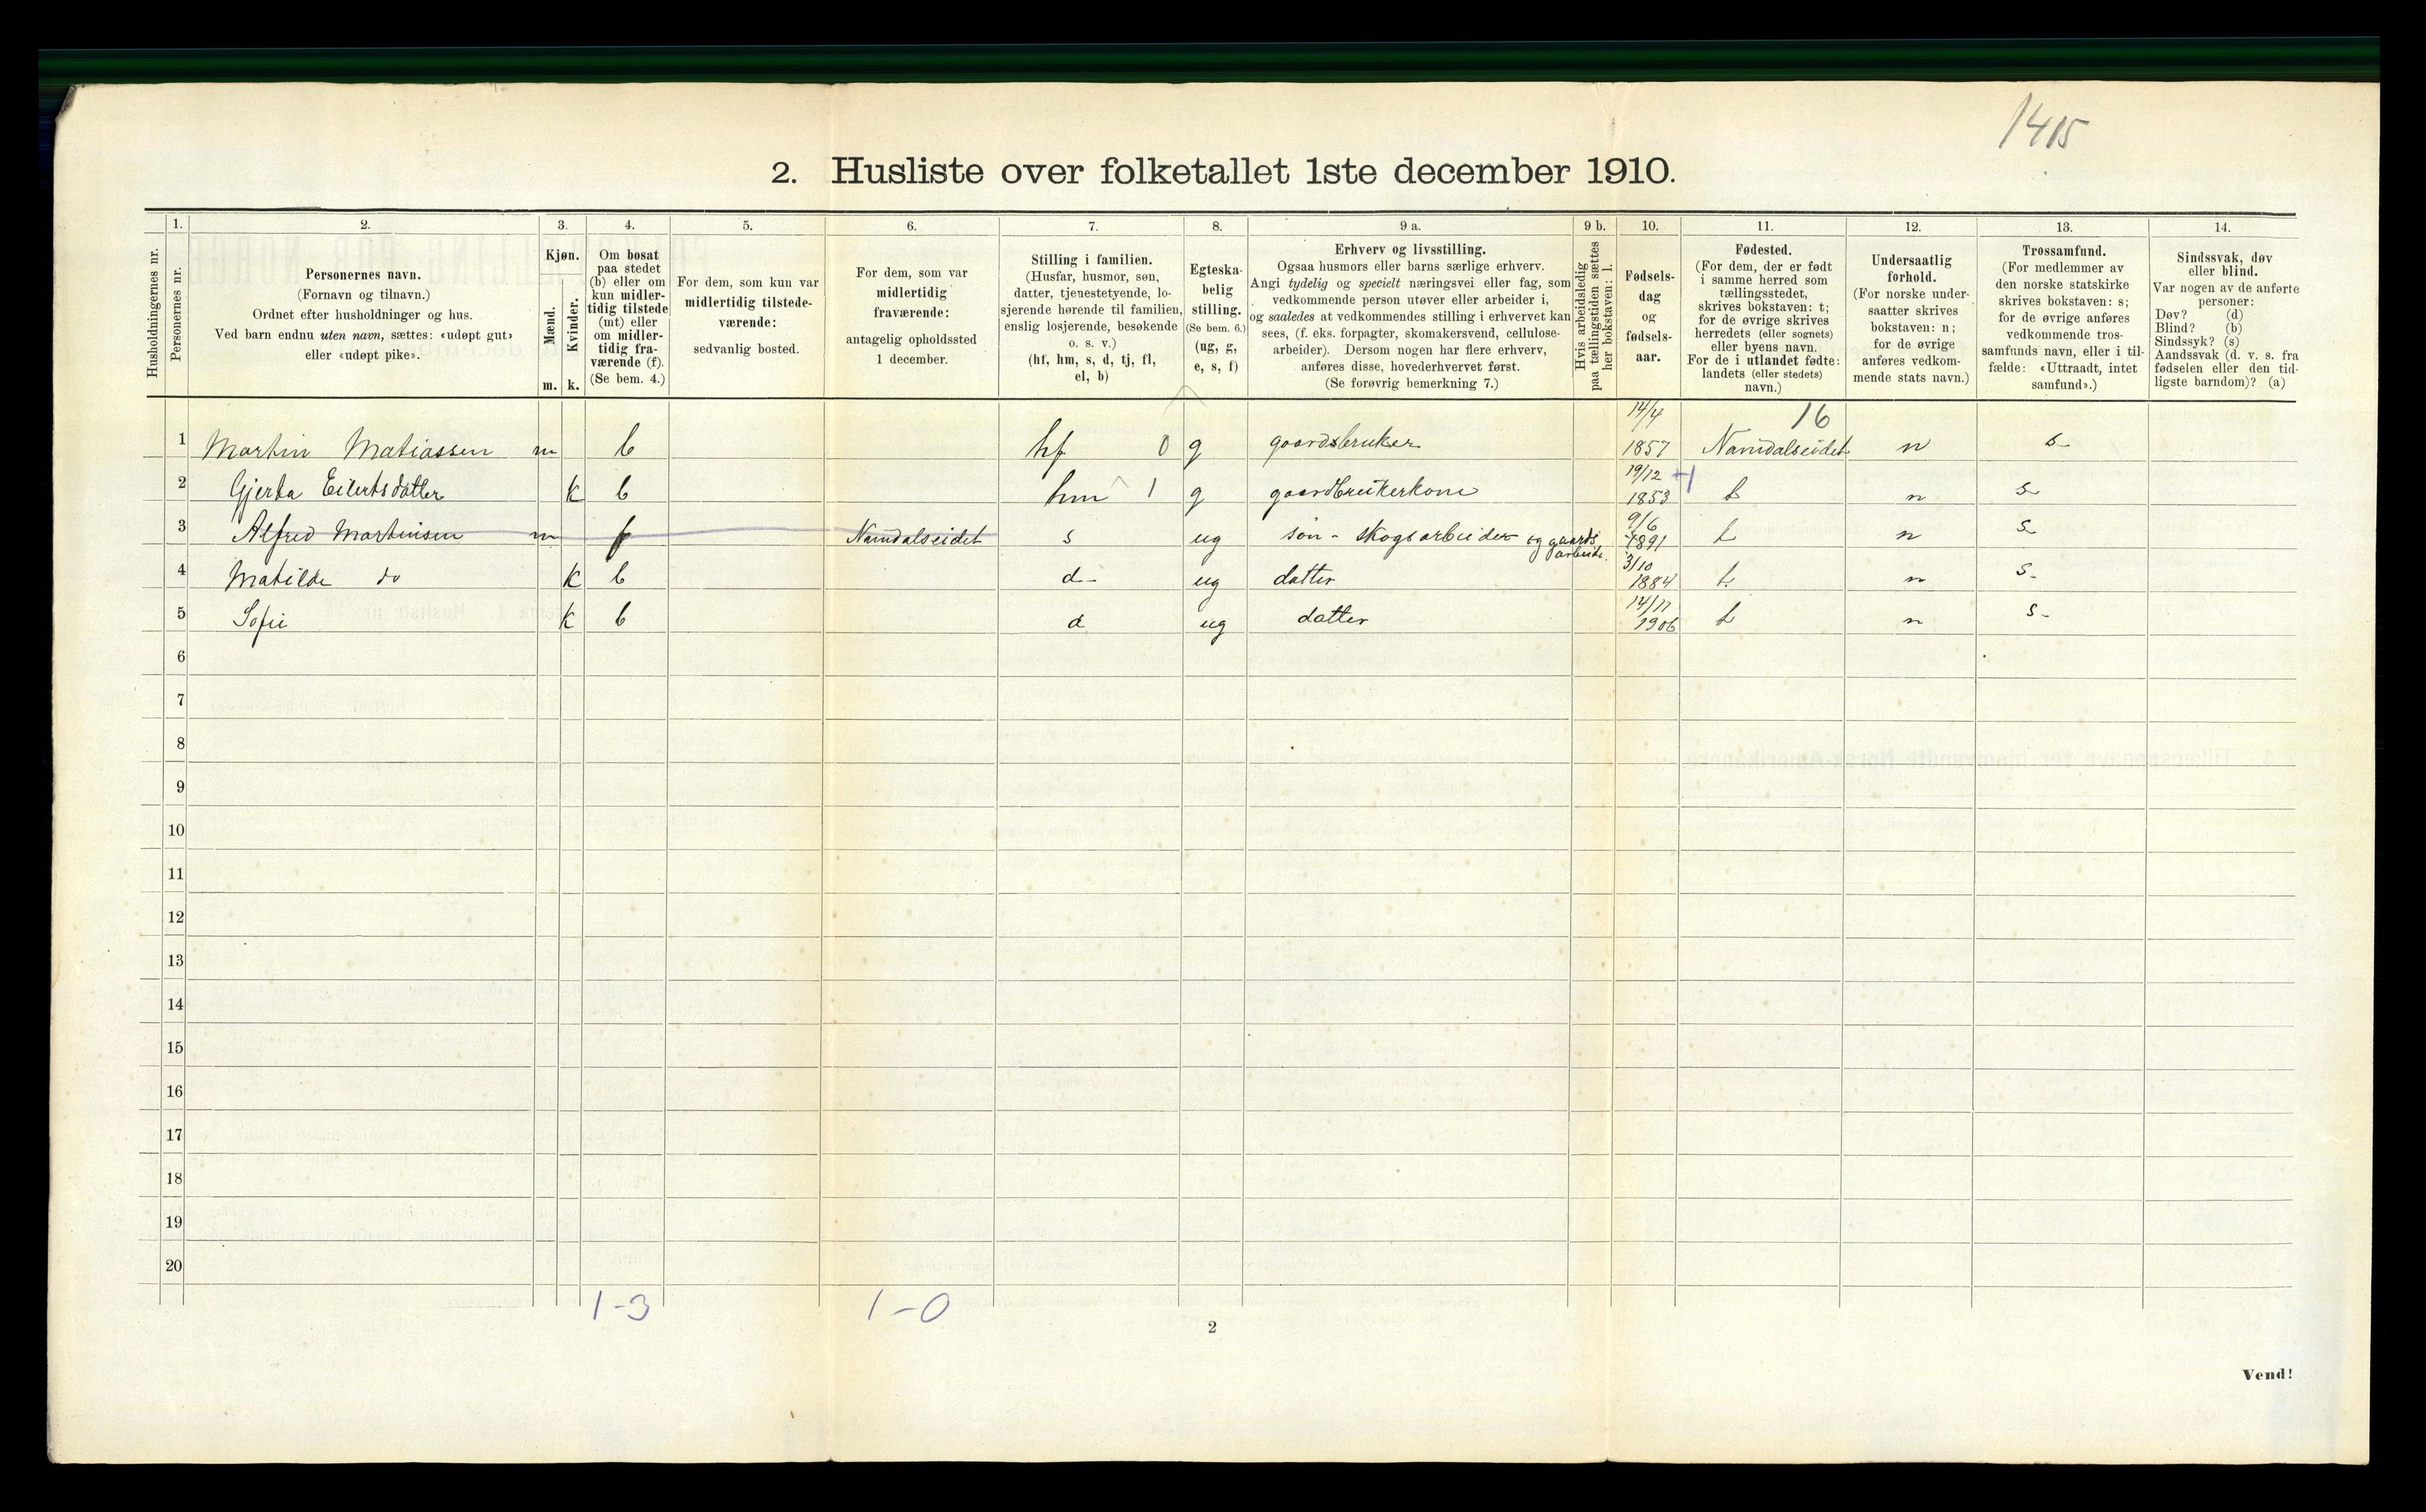 1415
2. Husliste over folketallet 1ste december 1910.
1. 2. 3. 4. 5. 6. 7. 8. 9 a. 9 b. 10. 11. 12. 13. 14.
Husholdningernes nr.
Personernes nr.
Personernes navn.
(Fornavn og tilnavn.)
Ordnet efter husholdninger og hus.
Ved barn endnu uten navn, sættes: «udøpt gut»
eller «udøpt pike».
Kjøn.
Mænd.
Kvinder.
m. k.
Om bosat
paa stedet
(b) eller om
kun midler-
tidig tilstede
(mt) eller
om midler-
tidig fra-
værende (f).
(Se bem. 4.)
For dem, som kun var
midlertidig tilstede-
værende:
sedvanlig bosted.
For dem, som var
midlertidig
fraværende:
antagelig opholdssted
1 december.
Stilling i familien.
(Husfar, husmor, søn,
datter, tjenestetyende, lo-
sjerende hørende til familien,
enslig losjerende, besøkende
o. s. v.)
(hf, hm, s, d, tj, fl,
el, b)
Egteska-
belig
stilling.
(Se bem. 6.)
(ug, g,
e, s, f)
Erhverv og livsstilling.
Ogsaa husmors eller barns særlige erhverv.
Angi tydelig og specielt næringsvei eller fag, som
vedkommende person utøver eller arbeider i,
og saaledes at vedkommendes stilling i erhvervet kan
sees, (f. eks. forpagter, skomakersvend, cellulose-
arbeider). Dersom nogen har flere erhverv,
anføres disse, hovederhvervet først.
(Se forøvrig bemerkning 7.)
Hvis arbeidsledig
paa tællingstiden sættes
her bokstaven: l.
Fødsels-
dag
og
fødsels-
aar.
Fødested.
(For dem, der er født
i samme herred som
tællingsstedet,
skrives bokstaven: t;
for de øvrige skrives
herredets (eller sognets)
eller byens navn.
For de i utlandet fødte:
landets (eller stedets)
navn.)
Undersaatlig
forhold.
(For norske under-
saatter skrives
bokstaven: n;
for de øvrige
anføres vedkom-
mende stats navn.)
Trossamfund.
(For medlemmer av
den norske statskirke
skrives bokstaven: s;
for de øvrige anføres
vedkommende tros-
samfunds navn, eller i til-
fælde: «Uttraadt, intet
samfund».)
Sindssvak, døv
eller blind.
Var nogen av de anførte
personer:
Døv? (d)
Blind? (b)
Sindssyk? (s)
Aandssvak (d. v. s. fra
fødselen eller den tid-
ligste barndom)? (a)
14/4 16
1 Martin Matiassen m b hf 0 g gaardsbruker 1857 Namdalseidet n s
19/12 +1
2 Gjerta Eilertsdatter k b hm 1 g gaardbrukerkone 1853 t n s
9/6
3 Alfred Martinsen m f Namdalseidet s ug søn - skogsarbeider og gaards 1891 t n s
arbeide.
3/10
4 Matilde do k b d ug datter 1884 t n s
14/11
5 Sofie k b d ug datter 1906 t n s
6
7
8
9
10
11
12
13
14
15
16
17
18
19
20
1-3 1-0
2
Vend!